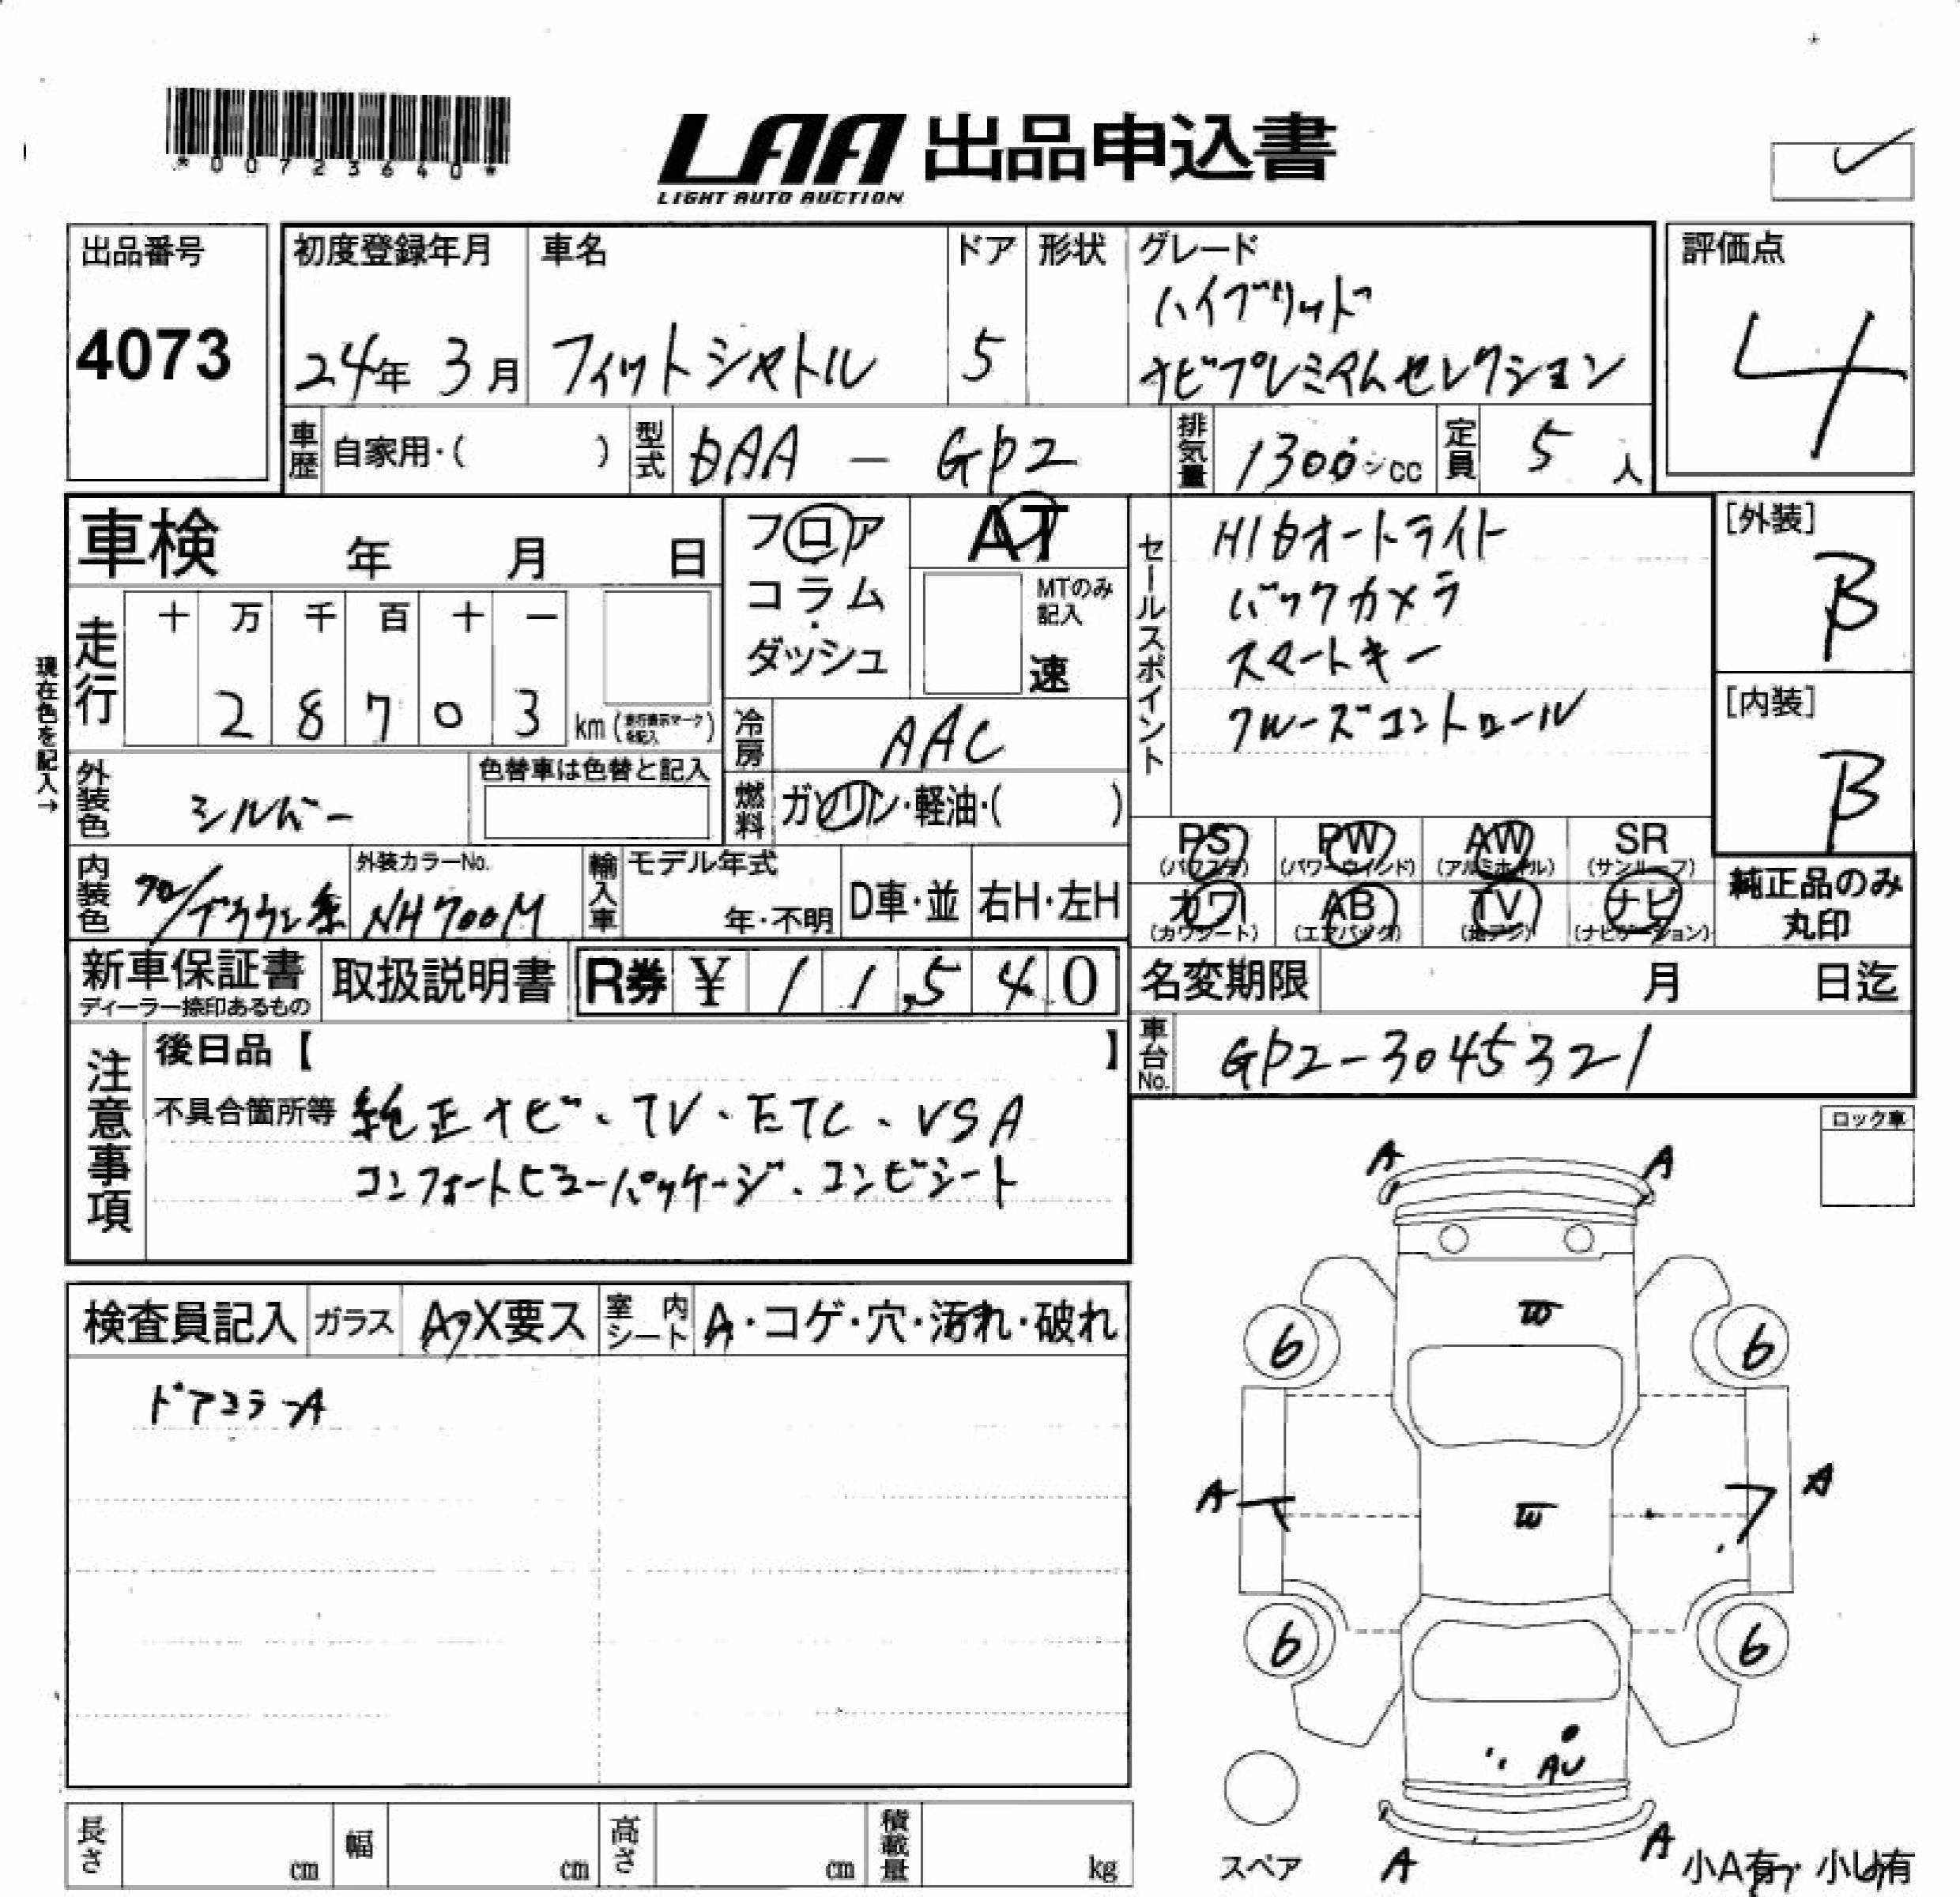 *00723640*
LAA 出品申込書
LIGHT AUTO AUCTION
出品番号
4073
初度登録年月
24年 3月
車名
フィットシャトル
ドア
5
形状
グレード
ハイブリッド
ナビプレミアムセレクション
評価点
4
車歴
自家用・( )
型式
DAA - GP2
排気量
1300 cc
定員
5 人
車検 年 月 日
フロア
コラム
・
ダッシュ
AT
MTのみ
記入
速
セールスポイント
HIDオートライト
バックカメラ
スマートキー
クルーズコントロール
[外装]
B
[内装]
B
現在色を記入→
走行
十 万 千 百 十 一
2 8 7 0 3 km (走行表示マークを記入)
冷房
AAC
外装色
シルバー
色替車は色替と記入
燃料
ガソリン・軽油・( )
PS
(パワステ)
PW
(パワーウインド)
AW
(アルミホイル)
SR
(サンルーフ)
カワ
(カワシート)
AB
(エアバッグ)
TV
(地デジ)
ナビ
(ナビゲーション)
純正品のみ
丸印
内装色
ブラウン系
外装カラーNo.
NH700M
輸入車
モデル年式
年・不明
D車・並
右H・左H
新車保証書
ディーラー捺印あるもの
取扱説明書
R券 ¥ 1 1,5 4 0
名変期限 月 日迄
車台No.
GP2-3045321
注意事項
後日品【 】
不具合箇所等 純正ナビ、TV、ETC、VSA
コンフォートビューパッケージ、コンビシート
ロック車
検査員記入
ガラス
A・X要ス
室内シート
A・コゲ・穴・汚れ・破れ
ドアミラーA
A A
W
6 6
A A
W
6 6
AU
スペア
A A
小A有 小U有
長さ cm
幅 cm
高さ cm
積載量 kg